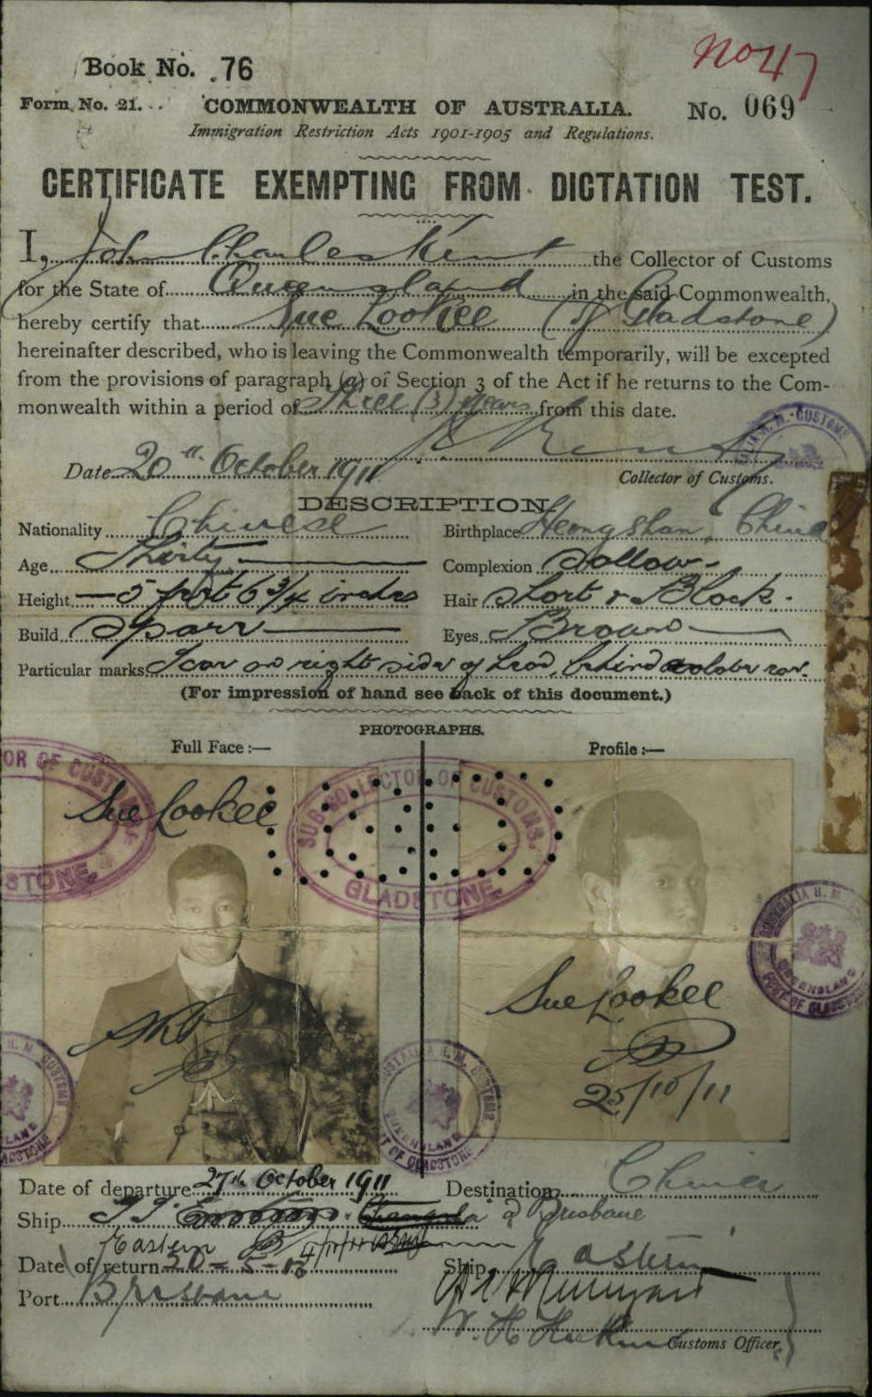 No 47
Book No. 76
Form No. 21. COMMONWEALTH OF AUSTRALIA. No. 069
Immigration Restriction Acts 1901-1905 and Regulations.
CERTIFICATE EXEMPTING FROM DICTATION TEST.
I, John Charles Kent the Collector of Customs
for the State of Queensland in the said Commonwealth,
hereby certify that Sue Lookee (of Gladstone)
hereinafter described, who is leaving the Commonwealth temporarily, will be excepted
from the provisions of paragraph (a) of Section 3 of the Act if he returns to the Com-
monwealth within a period of Three (3) years from this date.
Date 20th October 1911
Collector of Customs.
DESCRIPTION
Nationality Chinese Birthplace Heongshan, China
Age Thirty Complexion Sallow
Height 5 feet 6 3/4 inches Hair Short & Black.
Build Sparr Eyes Brown
Particular marks Scar on right side of head, behind ear.
(For impression of hand see back of this document.)
PHOTOGRAPHS.
Full Face:— Profile:—
SUB-COLLECTOR OF CUSTOMS. GLADSTONE.
Sue Lookee
Sue Lookee
25/10/11
Date of departure 27th October 1911 Destination China
Ship Changsha @ Brisbane
Eastern 4/11/11
Date of return 20-5-13 Ship Eastern
Port Brisbane
Customs Officer.